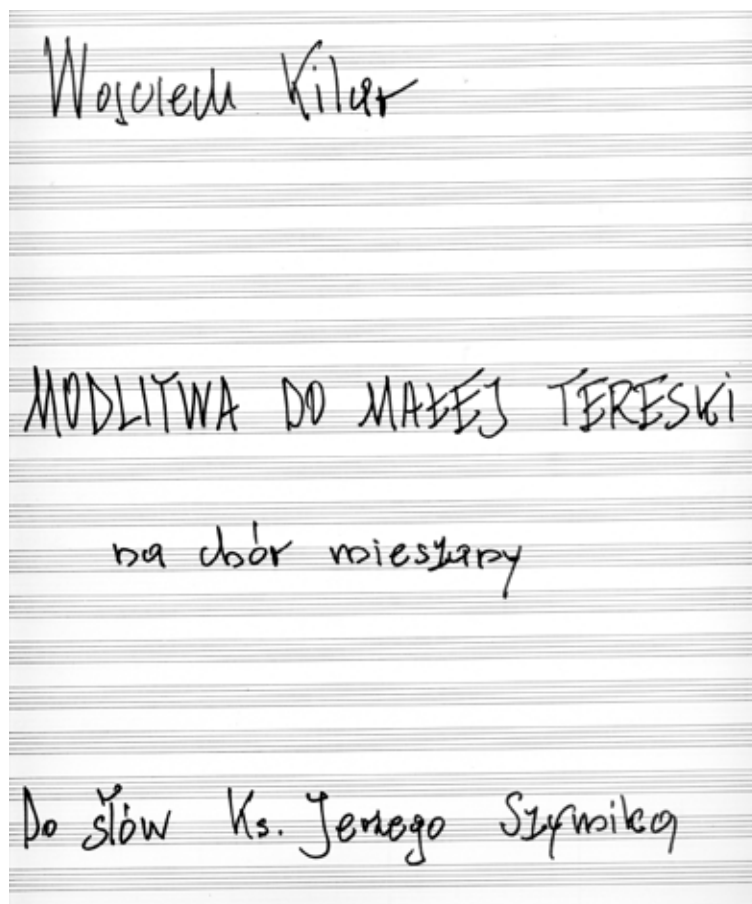 Wojciech Kilar
MODLITWA DO MAŁEJ TERESKI
na chór mieszany
Do słów Ks. Jerzego Szymika